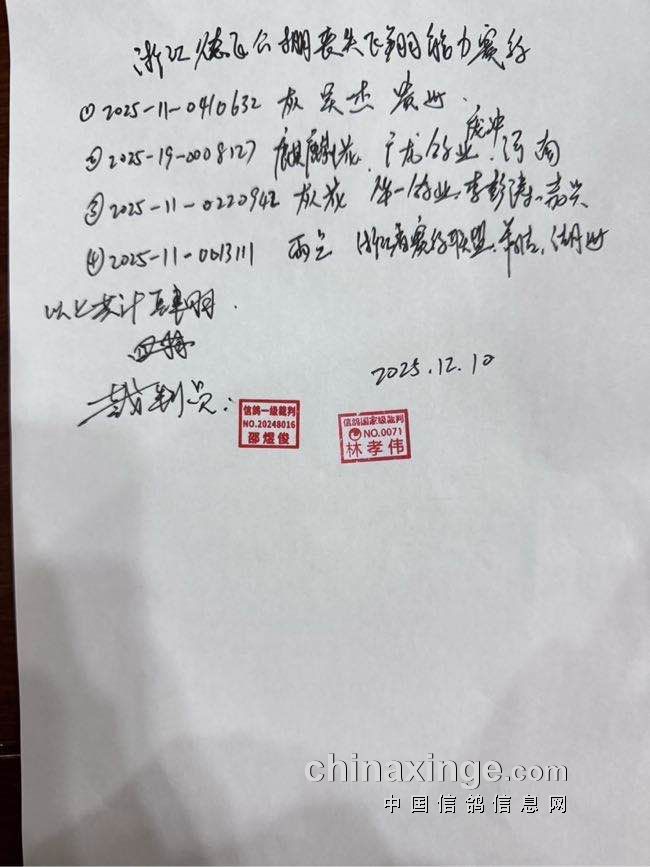 浙江德飞公棚丧失飞翔能力赛鸽
①2025-11-0410632 灰 吴杰 湖州.
②2025-19-0008127 麒麟花. 广龙鸽业. 庞冲 河南
③2025-11-0220942 灰花 伟一鸽业.李彭涛.嘉兴
④2025-11-0013111 雨点 浙江省赛鸽联盟. 湖州
以上共计 羽.
2025.12.10
裁判员:
信鸽一级裁判
NO.20248016
邵煜俊
信鸽国家级裁判
NO.0071
林孝伟
chinaxinge.com
中国信鸽信息网